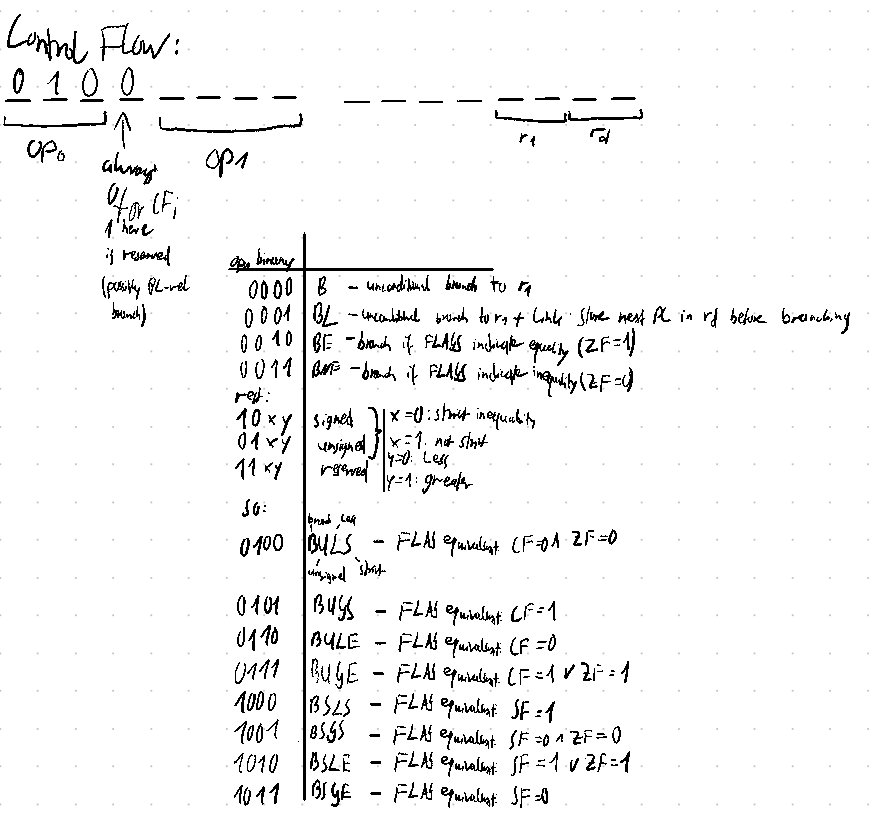 Control Flow:
0 1 0 0 _ _ _ _ _ _ _ _ _ _ _ _
op₀ op1 r₁ rd
always
0 for CF;
1 here
is reserved
(possibly PC-rel
branch)
op₁ binary
0000 B - unconditional branch to r₁
0001 BL - unconditional branch to r₁ + Link: Store next PC in rd before branching
0010 BE - branch if FLAGS indicate equality (ZF=1)
0011 BNE - branch if FLAGS indicate inequality (ZF=0)
rest:
10xy signed x=0: strict inequality
01xy unsigned x=1: not strict
11xy reserved y=0: Less
y=1: greater
so:
branch less
0100 BULS - FLAG equivalent: CF=0 ∧ ZF=0
unsigned strict
0101 BUGS - FLAG equivalent: CF=1
0110 BULE - FLAG equivalent: CF=0
0111 BUGE - FLAG equivalent: CF=1 ∨ ZF=1
1000 BSLS - FLAG equivalent: SF=1
1001 BSGS - FLAG equivalent: SF=0 ∧ ZF=0
1010 BSLE - FLAG equivalent: SF=1 ∨ ZF=1
1011 BSGE - FLAG equivalent: SF=0